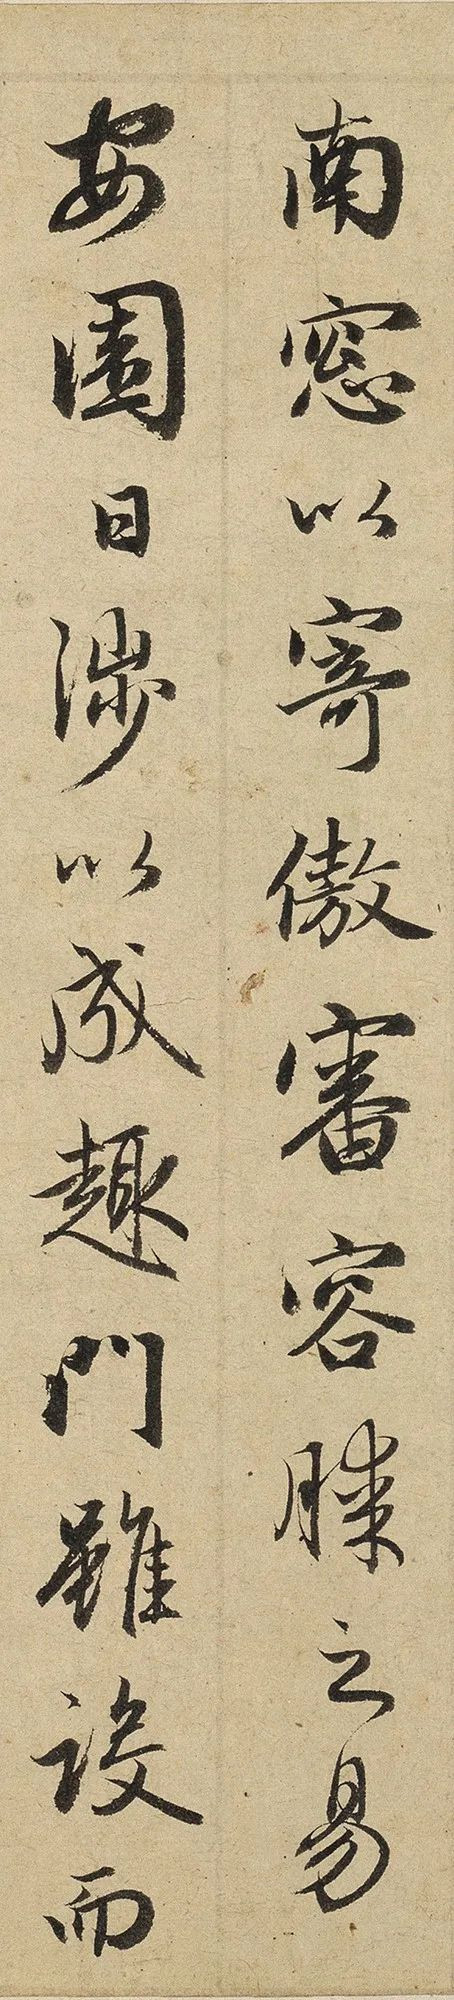 南窓以寄傲審容膝之易
安園日渉以成趣門雖設而